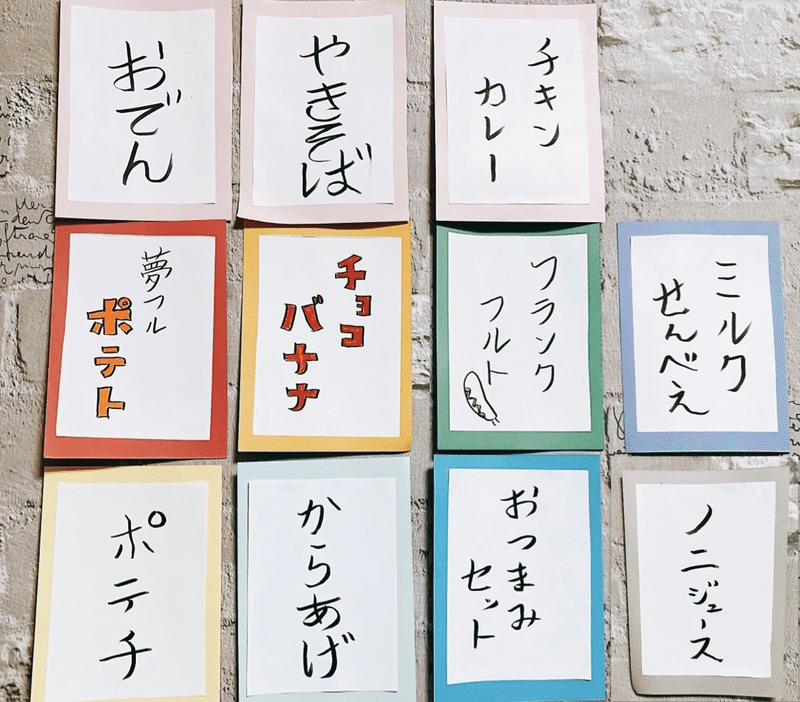 おでん
やきそば
チキン
カレー
夢フル
ポテト
チョコ
バナナ
フランク
フルト
ミルク
せんべえ
ポテチ
からあげ
おつまみ
セット
ノニジュース